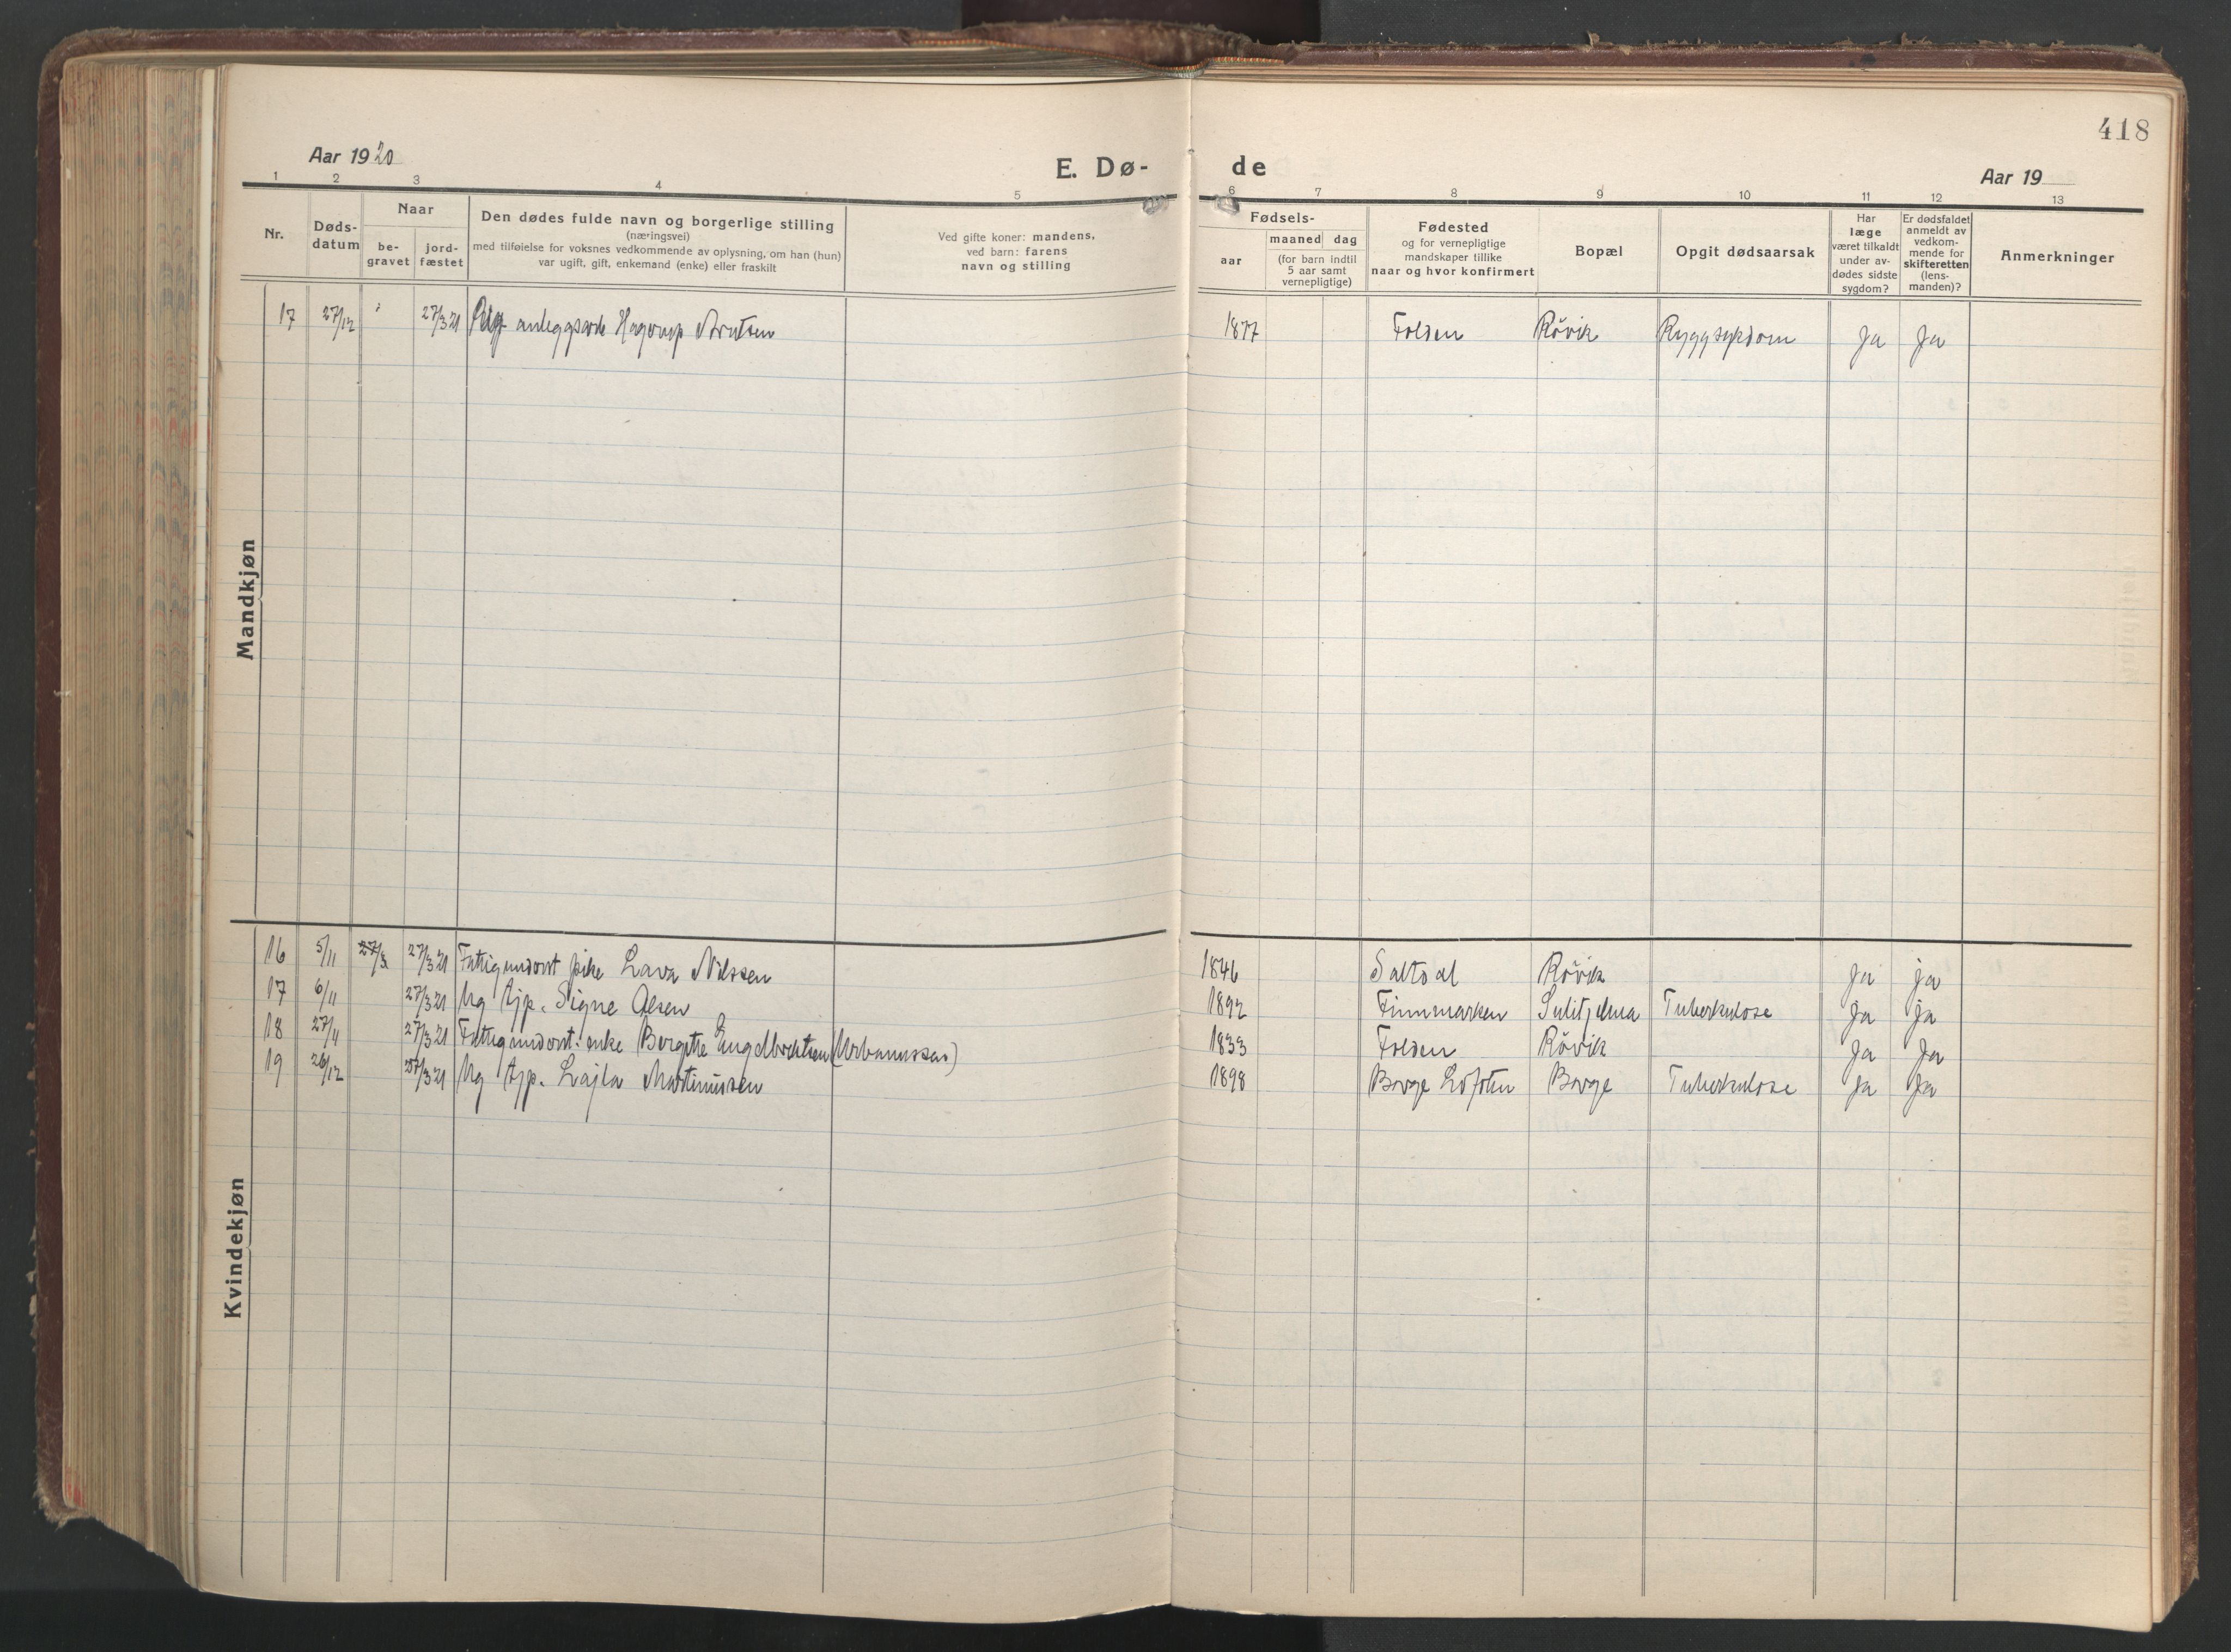 418
Aar 1920
E. Dø-
de
Aar 19
1 2 3 4 5 6 7 8 9 10 11 12 13
Nr.
Døds-
datum
Naar
be-
gravet
jord-
fæstet
Den dødes fulde navn og borgerlige stilling
(næringsvei)
med tilføielse for voksnes vedkommende av oplysning, om han (hun)
var ugift, gift, enkemand (enke) eller fraskilt
Ved gifte koner: mandens,
ved barn: farens
navn og stilling
Fødsels-
aar
maaned dag
(for barn indtil
5 aar samt
vernepligtige)
Fødested
og for vernepligtige
mandskaper tillike
naar og hvor konfirmert
Bopæl
Opgit dødsaarsak
Har
læge
været tilkaldt
under av-
dødes sidste
sygdom?
Er dødsfaldet
anmeldt av
vedkom-
mende for
skifteretten
(lens-
manden)?
Anmerkninger
Mandkjøn
17 27/12 27/3 21 anleggsarb Hagerup 1877 Folden Rövik Ryggsykdom Ja Ja
Kvindekjøn
16 5/11 27/3 27/3 21 Fattigunderst pike Lava Nilssen 1846 Saltdal Rövik Ja ja
17 6/11 27/3 21 Ug tjp. Signe Olsen 1892 Finnmarken Sulitjelma Tuberkulose Ja ja
18 27/11 27/3 21 Fattigunderst. enke Bergitte Engelbrektsen (Urbanussen) 1833 Folden Rövik Ja Ja
19 26/12 27/3 21 Ug tjp. Lajla Martinussen 1898 Borge Lofoten Borge Tuberkulose Ja Ja